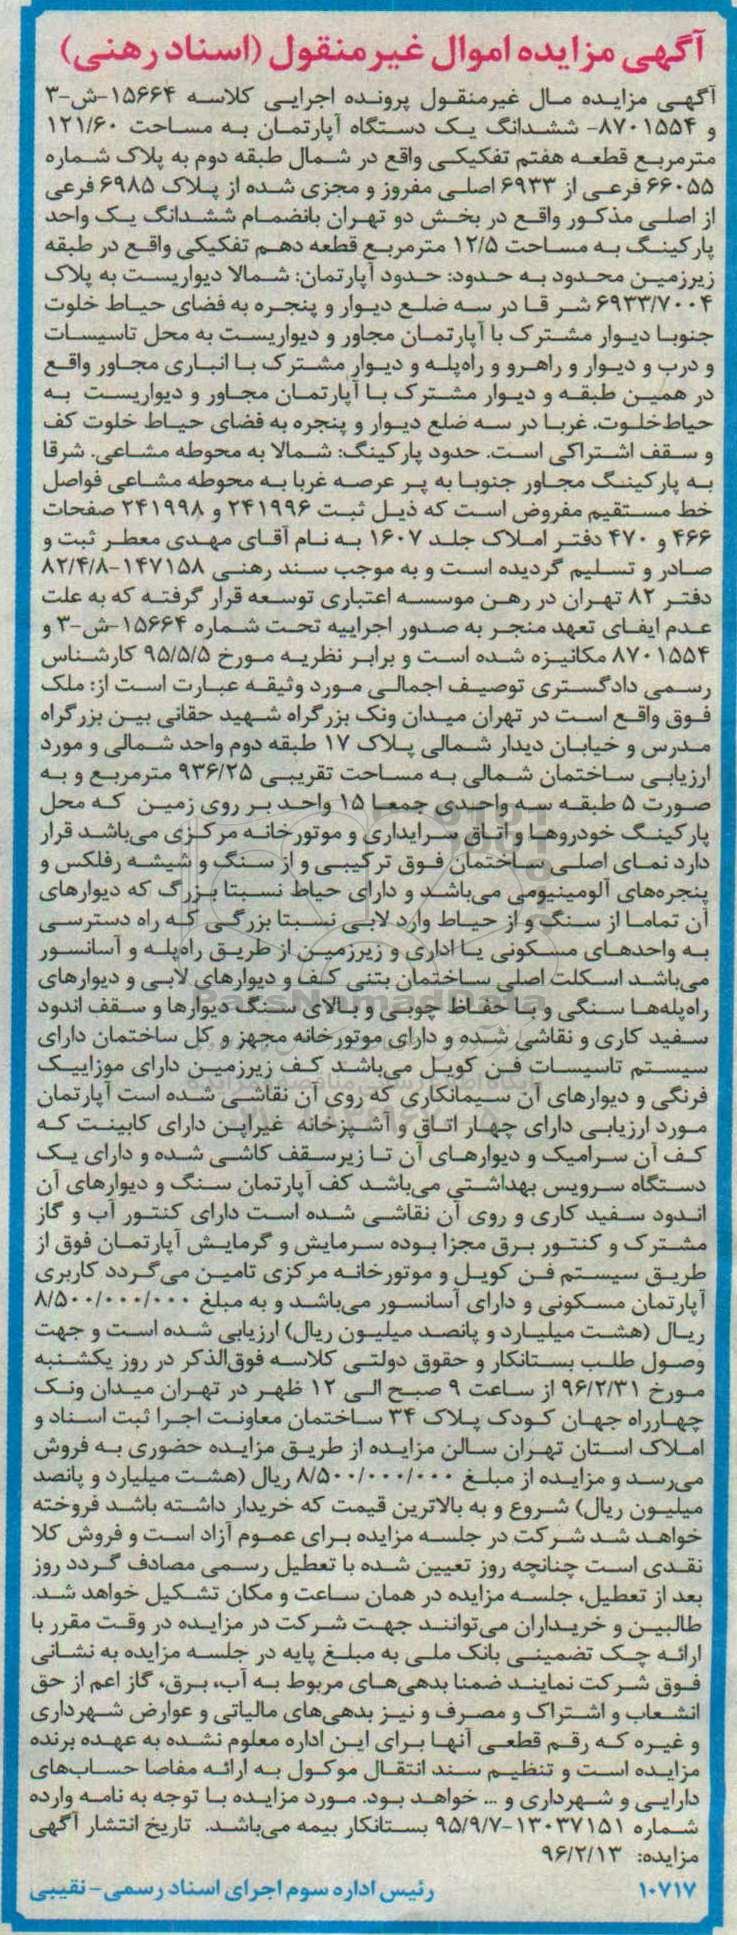 آگهی مزایده اموال غیرمنقول (اسناد رهنی)
آگهی مزایده مال غیرمنقول پرونده اجرایی کلاسه ۱۵۶۶۴-ش-۳
و ۸۷۰۱۵۵۴- ششدانگ یک دستگاه آپارتمان به مساحت ۱۲۱/۶۰
مترمربع قطعه هفتم تفکیکی واقع در شمال طبقه دوم به پلاک شماره
۶۶۰۵۵ فرعی از ۶۹۳۳ اصلی مفروز و مجزی شده از پلاک ۶۹۸۵ فرعی
از اصلی مذکور واقع در بخش دو تهران بانضمام ششدانگ یک واحد
پارکینگ به مساحت ۱۲/۵ مترمربع قطعه دهم تفکیکی واقع در طبقه
زیرزمین محدود به حدود: حدود آپارتمان: شمالا دیواریست به پلاک
۶۹۳۳/۷۰۰۴ شرقا در سه ضلع دیوار و پنجره به فضای حیاط خلوت
جنوبا دیوار مشترک با آپارتمان مجاور و دیواریست به محل تاسیسات
و درب و دیوار و راهرو و راه‌پله و دیوار مشترک با انباری مجاور واقع
در همین طبقه و دیوار مشترک با آپارتمان مجاور و دیواریست به
حیاط‌خلوت. غربا در سه ضلع دیوار و پنجره به فضای حیاط خلوت کف
و سقف اشتراکی است. حدود پارکینگ: شمالا به محوطه مشاعی. شرقا
به پارکینگ مجاور جنوبا به پر عرصه غربا به محوطه مشاعی فواصل
خط مستقیم مفروض است که ذیل ثبت ۲۴۱۹۹۶ و ۲۴۱۹۹۸ صفحات
۴۶۶ و ۴۷۰ دفتر املاک جلد ۱۶۰۷ به نام آقای مهدی معطر ثبت و
صادر و تسلیم گردیده است و به موجب سند رهنی ۱۴۷۱۵۸-۸۲/۴/۸
دفتر ۸۲ تهران در رهن موسسه اعتباری توسعه قرار گرفته که به علت
عدم ایفای تعهد منجر به صدور اجراییه تحت شماره ۱۵۶۶۴-ش-۳ و
۸۷۰۱۵۵۴ مکانیزه شده است و برابر نظریه مورخ ۹۵/۵/۵ کارشناس
رسمی دادگستری توصیف اجمالی مورد وثیقه عبارت است از: ملک
فوق واقع است در تهران میدان ونک بزرگراه شهید حقانی بین بزرگراه
مدرس و خیابان دیدار شمالی پلاک ۱۷ طبقه دوم واحد شمالی و مورد
ارزیابی ساختمان شمالی به مساحت تقریبی ۹۳۶/۲۵ مترمربع و به
صورت ۵ طبقه سه واحدی جمعا ۱۵ واحد بر روی زمین که محل
پارکینگ خودروها و اتاق سرایداری و موتورخانه مرکزی می‌باشد قرار
دارد نمای اصلی ساختمان فوق ترکیبی و از سنگ و شیشه رفلکس و
پنجره‌های آلومینیومی می‌باشد و دارای حیاط نسبتا بزرگ که دیوارهای
آن تماما از سنگ و از حیاط وارد لابی نسبتا بزرگی که راه دسترسی
به واحدهای مسکونی یا اداری و زیرزمین از طریق راه‌پله و آسانسور
می‌باشد اسکلت اصلی ساختمان بتنی کف و دیوارهای لابی و دیوارهای
راه‌پله‌ها سنگی و با حفاظ چوبی و بالای سنگ دیوارها و سقف اندود
سفید کاری و نقاشی شده و دارای موتورخانه مجهز و کل ساختمان دارای
سیستم تاسیسات فن کویل می‌باشد کف زیرزمین دارای موزاییک
فرنگی و دیوارهای آن سیمانکاری که روی آن نقاشی شده است آپارتمان
مورد ارزیابی دارای چهار اتاق و آشپزخانه غیراپن دارای کابینت که
کف آن سرامیک و دیوارهای آن تا زیرسقف کاشی شده و دارای یک
دستگاه سرویس بهداشتی می‌باشد کف آپارتمان سنگ و دیوارهای آن
اندود سفید کاری و روی آن نقاشی شده است دارای کنتور آب و گاز
مشترک و کنتور برق مجزا بوده سرمایش و گرمایش آپارتمان فوق از
طریق سیستم فن کویل و موتورخانه مرکزی تامین می‌گردد کاربری
آپارتمان مسکونی و دارای آسانسور می‌باشد و به مبلغ ۸/۵۰۰/۰۰۰/۰۰۰
ریال (هشت میلیارد و پانصد میلیون ریال) ارزیابی شده است و جهت
وصول طلب بستانکار و حقوق دولتی کلاسه فوق‌الذکر در روز یکشنبه
مورخ ۹۶/۲/۳۱ از ساعت ۹ صبح الی ۱۲ ظهر در تهران میدان ونک
چهارراه جهان کودک پلاک ۳۴ ساختمان معاونت اجرا ثبت اسناد و
املاک استان تهران سالن مزایده از طریق مزایده حضوری به فروش
می‌رسد و مزایده از مبلغ ۸/۵۰۰/۰۰۰/۰۰۰ ریال (هشت میلیارد و پانصد
میلیون ریال) شروع و به بالاترین قیمت که خریدار داشته باشد فروخته
خواهد شد شرکت در جلسه مزایده برای عموم آزاد است و فروش کلا
نقدی است چنانچه روز تعیین شده با تعطیل رسمی مصادف گردد روز
بعد از تعطیل، جلسه مزایده در همان ساعت و مکان تشکیل خواهد شد.
طالبین و خریداران می‌توانند جهت شرکت در مزایده در وقت مقرر با
ارائه چک تضمینی بانک ملی به مبلغ پایه در جلسه مزایده به نشانی
فوق شرکت نمایند ضمنا بدهی‌های مربوط به آب، برق، گاز اعم از حق
انشعاب و اشتراک و مصرف و نیز بدهی‌های مالیاتی و عوارض شهرداری
و غیره که رقم قطعی آنها برای این اداره معلوم نشده به عهده برنده
مزایده است و تنظیم سند انتقال موکول به ارائه مفاصا حساب‌های
دارایی و شهرداری و ... خواهد بود. مورد مزایده با توجه به نامه وارده
شماره ۱۳۰۳۷۱۵۱-۹۵/۹/۷ بستانکار بیمه می‌باشد. تاریخ انتشار آگهی
مزایده: ۹۶/۲/۱۳
۱۰۷۱۷ رئیس اداره سوم اجرای اسناد رسمی- نقیبی
ParsNamadData